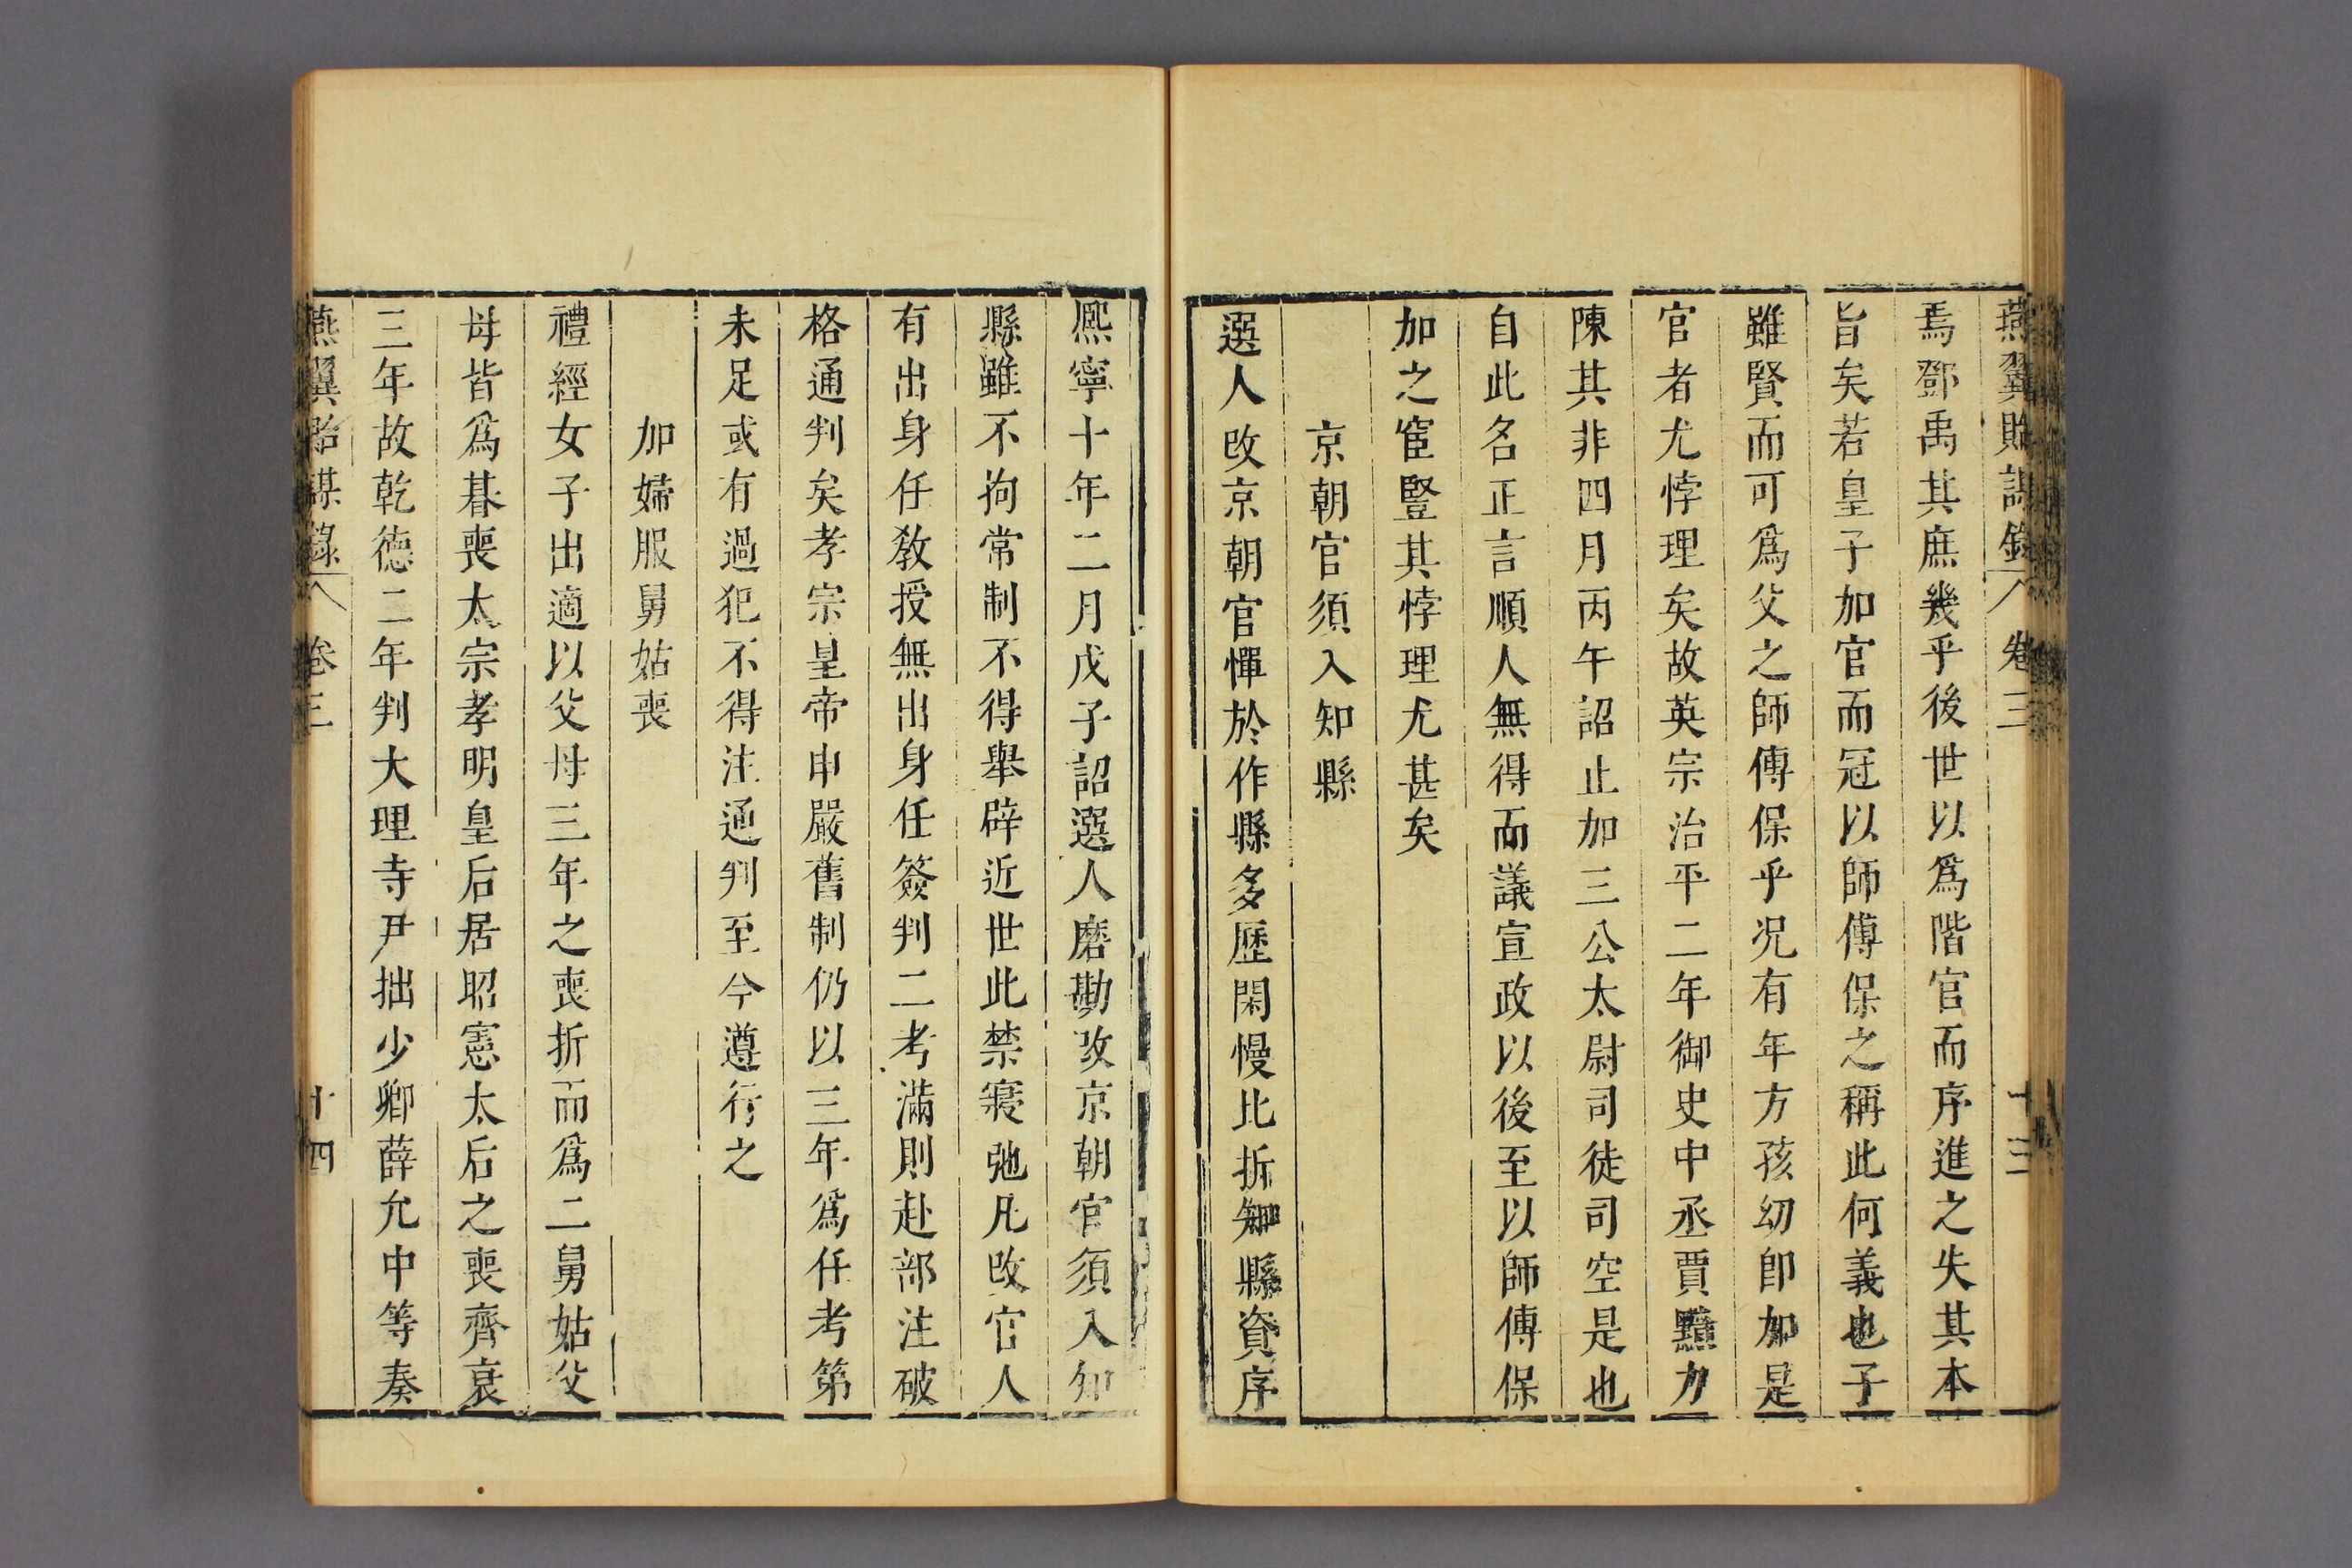 燕翼貽謀錄 卷三 十三
焉鄧禹其庶幾乎後世以爲階官而序進之失其本
旨矣若皇子加官而冠以師傅保之稱此何義也子
雖賢而可爲父之師傅保乎况有年方孩幼卽加是
官者尤悖理矣故英宗治平二年御史中丞賈黯力
陳其非四月丙午詔止加三公太尉司徒司空是也
自此名正言順人無得而議宣政以後至以師傅保
加之宦豎其悖理尤甚矣
京朝官須入知縣
選人改京朝官憚於作縣多歷閑慢比折知縣資序
熙寧十年二月戊子詔選人磨勘改京朝官須入知
縣雖不拘常制不得舉辟近世此禁寖弛凡改官人
有出身任教授無出身任簽判二考滿則赴部注破
格通判矣孝宗皇帝申嚴舊制仍以三年爲任考第
未足或有過犯不得注通判至今遵行之
加婦服舅姑喪
禮經女子出適以父母三年之喪折而爲二舅姑父
母皆爲朞喪太宗孝明皇后居昭憲太后之喪齊衰
三年故乾德二年判大理寺尹拙少卿薛允中等奏
燕翼貽謀錄 卷三 十四